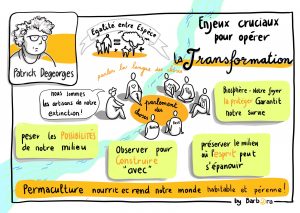 Patrick Degeorges
Égalité entre Espèce
=
parler la langue des choses
Enjeux cruciaux
pour opérer
la Transformation
nous sommes
les artisans de notre
extinction!
parlement
des
choses
Biosphère = notre foyer
la protéger Garantit
notre survie
peser les POSSIBILITÉS
de notre milieu
Observer pour
Construire
"avec"
préserver le milieu
où l'esprit peut
s'épanouir
Permaculture nourrit et rend notre monde habitable et pérenne!
by Barb@ra